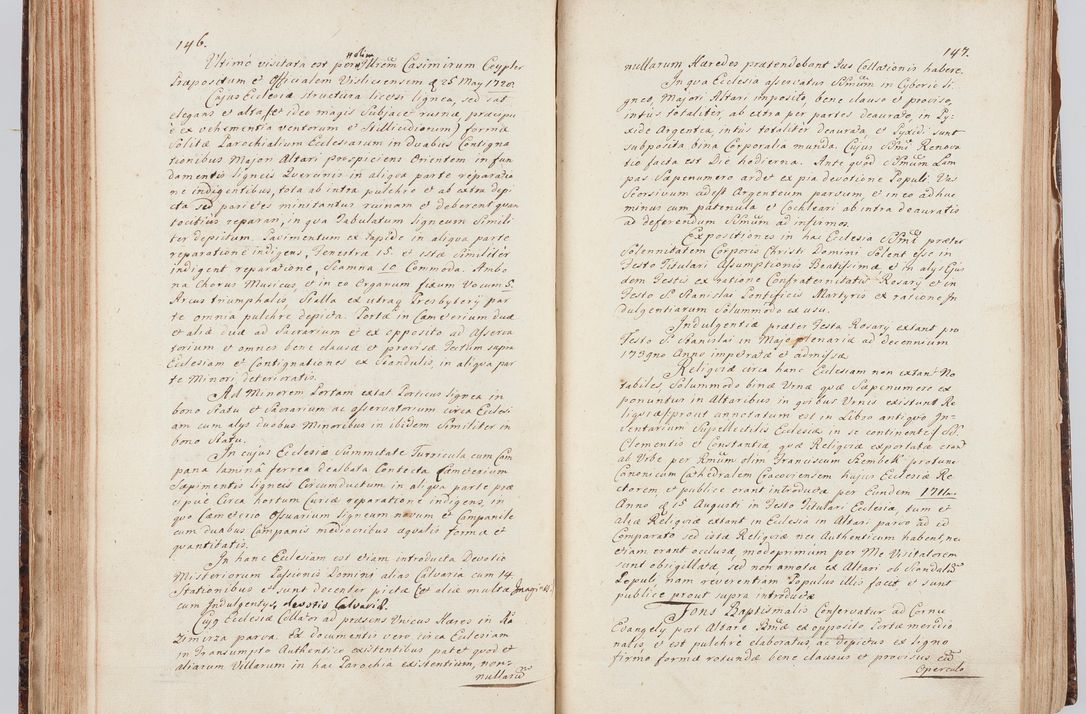 146.
olim
Ultimo visitata est per Illrem Casimirum Ceypler
Præpositum et Officialem Vislicensem d 25 May 1720.
Cujus Ecclesiæ structura licet lignea, sed sat
elegans et alta (et ideo magis Subjacet ruinæ, præcipu
è ex vehementia ventorum et Stillicidiorum) formâ
solitâ Parochialium Ecclesiarum in duabus Contigna
tionibus Major Altari prospiciens Orientem in fun
damentis ligneis Quercinis in aliqua parte reparatio
ne indigentibus, tota ab intra pulchre et ab extra depi
cta sed parietes minitantur ruinam et deberent quan
tocitius reparari, in qua Tabulatum ligneum Simili
ter depictum. Pavimentum ex lapide in aliqua parte
reparatione indigens, Fenestræ 15. et istæ similiter
indigent reparatione, Scamna 10 Commoda. Ambo
na Chorus Musicus, et in eo Organum fixum Vocum 5.
Arcus triumphalis, Stalla ex utraq Presbyterij par
te omnia pulchre depicta. Portæ in Cæmeterium duæ
et aliæ duæ ad Sacrarium et ex opposito ad Asserva
torium et omnes bene clausæ et provisæ Tectum supra
Ecclesiam et Contignationes ex Scandulis in aliqua par
te Minori deterioratis.
Ad Minorem Portam extat Porticus lignea in
bono Statu et Sacrarium ac Asservatorium circa Ecclesi
am cum alys duobus Minoribus in ibidem Similiter in
bono Statu.
In cujus Ecclesiæ Summitate Turricula cum Cam
pana laminâ ferrea dealbata Contecta Cæmeterium
Sapimentis ligneis Circumductum in aliqua parte præ
cipuè Circa hortum Curiæ reparatione indigens, in
quo Cæmeterio Ossuarium ligneum novum et Campanile
cum duabus Campanis mediocribus æqualis formæ et
quantitatis.
In hanc Ecclesiam est etiam introducta Devotio
Misteriorum Passionis Domini alias Calvaria cum 14.
Stationibus et sunt decenter pictæ et aliæ multæ Imagines.
cum Indulgentys, devotio Calvariæ.
Cujq Ecclesiæ Collator ad præsens Unicus Hæres in Ka
zimirza parva. Ex documentis vero circa Ecclesiam
in Transumpto Authentico existentibus patet quod et
aliarum Villarum in hac Parochia existentium, non-
nullarū
147.
nullarum Hæredes prætendebant Jus Collationis habere.
In qua Ecclesia asservatur SSmum in Cyborio li
gneo, Majori Altari imposito, bene clauso et proviso,
intus totaliter, ab extra per partes deaurato, in Py-
xide Argentea, intus totaliter deaurata, et Pyxidi sunt
subposita bina Corporalia munda. Cujus SSmi Renova
tio facta est Die hodierna. Ante quod SSmum Lam
pas Sæpenumero ardet ex pia devotione Populi. Vas
Seorsivum adest Argenteum parvum et in eo adhuc
minus cum patenula et Cochleari ab intra deauratis
ad deferendum SSmum ad infirmos.
Expositiones in hac Ecclesia SSmi præter
Solennitatem Corporis Christi Domini Solent esse in
Festo Titulari Assumptionis Beatissimæ et in alys Ejus
dem Festis ex ratione Confraternitatis Rosary et in
Festo S. Stanislai Pontificis Martyris ex ratione In
dulgentiarum Solummodo ex usu.
Indulgentiæ præter Festa Rosary extant pro
Festo S. Stanislai in Majo plenariæ ad decennium
1739no Anno imperatæ et admissæ
Religviæ circa hanc Ecclesiam non extant No
tabiles, Solummodo binæ Urnæ quæ Sæpenumero ex
ponuntur in Altaribus in qvibus Urnis existunt Re
ligviæ (prout annotatum est in Libro antiqvo In-
ventarium Suppellectilis Ecclesiæ in se continente) SS.
Clementis et Constantiæ, quæ Religviæ exportatæ erant
ab Urbe per Rmum olim Franciscum Szembek protunc
Canonicum Cathedralem Cracoviensem hujus Ecclesiæ Re
ctorem et publice erant introductæ per Eundem 1714to.
Anno d 15 Augusti in Festo Titulari Ecclesiæ, tum et
aliæ Religviæ extant in Ecclesia in Altari parvo ad id
Comparato sed istæ Religviæ nec Authenticum habent, nec
etiam erant occlusæ, modo primum per Me Visitatorem
sunt obsigillatæ, sed non amotæ ex Altari ob Scandalū
Populi, nam reverentiam Populus illis facit et sunt
publice prout supra introductæ
Fons Baptismalis Conservatur ad Cornu
Evangely post Altare Smæ ex opposito Portæ meredio
nalis, et est pulchre elaboratus ac depictus ex ligno
firmo formæ rotundæ bene clausus et provisus cū
Operculo